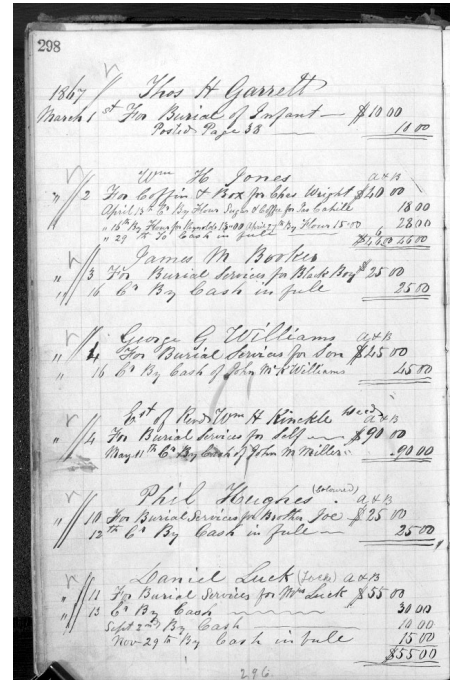 298
1867 Thos H Garrett
March 1st For Burial of Infant — $10 00
Posted Page 38 — 10 00
Wm H. Jones a & B
" 2 For Coffin & Box for Ches Wright $40 00
April 13th Cr By Flour Sugar & Coffee for Jas Cahill 18 00
" 16th By Flour for Reynolds 13.00 By Flour 15.00 28 00
" 29th To Cash in full 6
$46 00 46 00
James M Booker
" 3 For Burial Services for Black Boy $25 00
" 16 Cr By Cash in full 25 00
George G Williams a & B
" 4 For Burial Services for Son $45 00
" 16 Cr By Cash of John McK Williams 45 00
Est of Revd Wm H Kinckle a & B
" 4 For Burial Services for Self — $90 00
May 11th Cr By Cash of John M Miller " 90 00
Phil Hughes (Coloured) a & B
" 10 For Burial Services for Brother Joe $25 00
12th Cr By Cash in full — 25 00
Daniel Luck a & B
" 11 For Burial Services for Mrs Luck $55 00
" 13 Cr By Cash — 30 00
Sept 2nd By Cash — 10 00
Nov 29th By Cash in full 15 00
$55 00
296